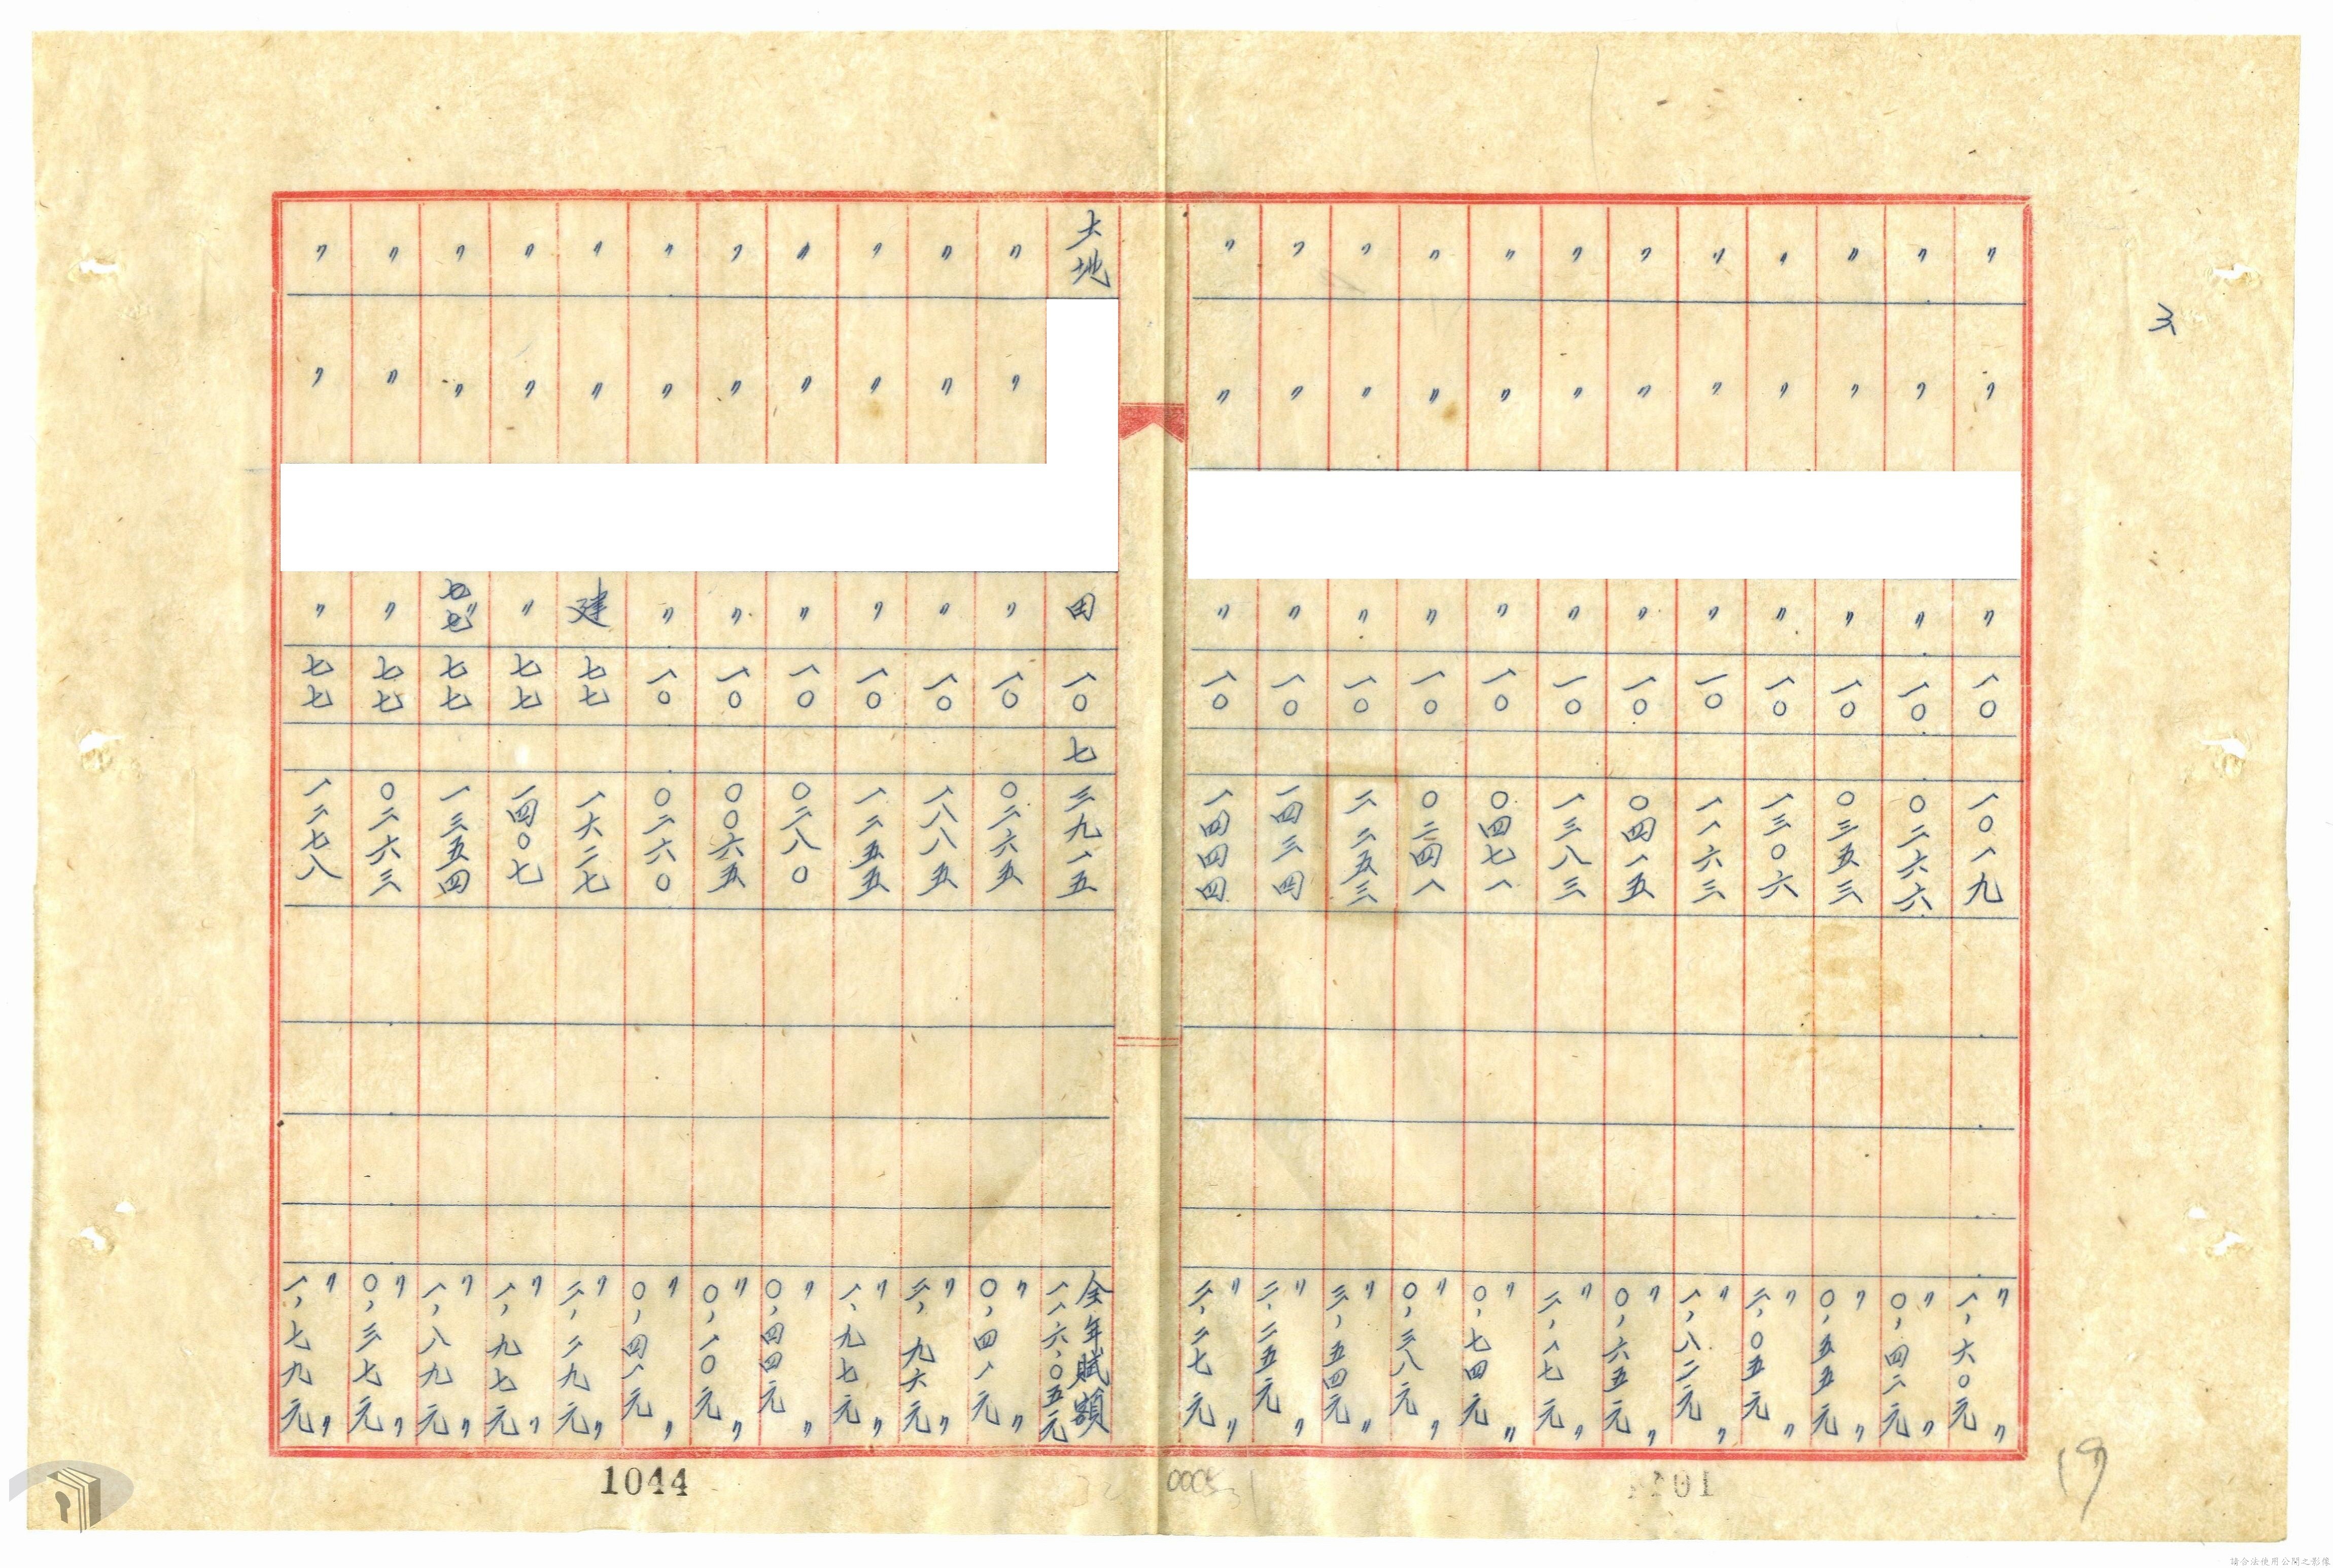 三
〃 〃 〃 一〇 一〇一九 〃 一,六〇元 〃
〃 〃 〃 一〇 〇二六六 〃 〇,四二元 〃
〃 〃 〃 一〇 〇三五三 〃 〇,五五元 〃
〃 〃 〃 一〇 一三〇六 〃 二,〇五元 〃
〃 〃 〃 一〇 一一六三 〃 一,八二元 〃
〃 〃 〃 一〇 〇四一五 〃 〇,六五元 〃
〃 〃 〃 一〇 一三八三 〃 二,一七元 〃
〃 〃 〃 一〇 〇四七一 〃 〇,七四元 〃
〃 〃 〃 一〇 〇二四一 〃 〇,三八元 〃
〃 〃 〃 一〇 二二五三 〃 三,五四元 〃
〃 〃 〃 一〇 一四三四 〃 二,二五元 〃
〃 〃 〃 一〇 一四四四 〃 二,二七元 〃
土地 田 一〇 七 三九一五 全年賦額 一一六,〇五元
〃 〃 〃 一〇 〇二六五 〃 〇,四一元 〃
〃 〃 〃 一〇 一八八五 〃 二,九六元 〃
〃 〃 〃 一〇 一二五五 〃 一,九七元 〃
〃 〃 〃 一〇 〇二八〇 〃 〇,四四元 〃
〃 〃 〃 一〇 〇〇六五 〃 〇,一〇元 〃
〃 〃 〃 一〇 〇二六〇 〃 〇,四一元 〃
〃 〃 建 七七 一六二七 〃 二,二九元 〃
〃 〃 〃 七七 一四〇七 〃 一,九七元 〃
〃 〃 〃 七七 一三五四 〃 一,八九元 〃
〃 〃 〃 七七 〇二六三 〃 〇,三七元 〃
〃 〃 〃 七七 一二七八 〃 一,七九元 〃
1044
19
請合法使用公開之影像